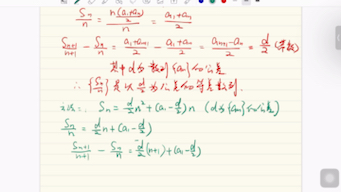 Sn/n = n(a₁+an)/2 / n = (a₁+an)/2
Sn+1/n+1 - Sn/n = (a₁+an+1)/2 - (a₁+an)/2 = (an+1-an)/2 = d/2 (常数)
其中d为数列{an}的公差
∴ {Sn/n} 是以d/2为公差的等差数列.
法二: Sn = d/2 n² + (a₁-d/2)n (d为{an}的公差)
Sn/n = d/2 n + (a₁-d/2)
Sn+1/n+1 - Sn/n = d/2 (n+1) + (a₁-d/2)